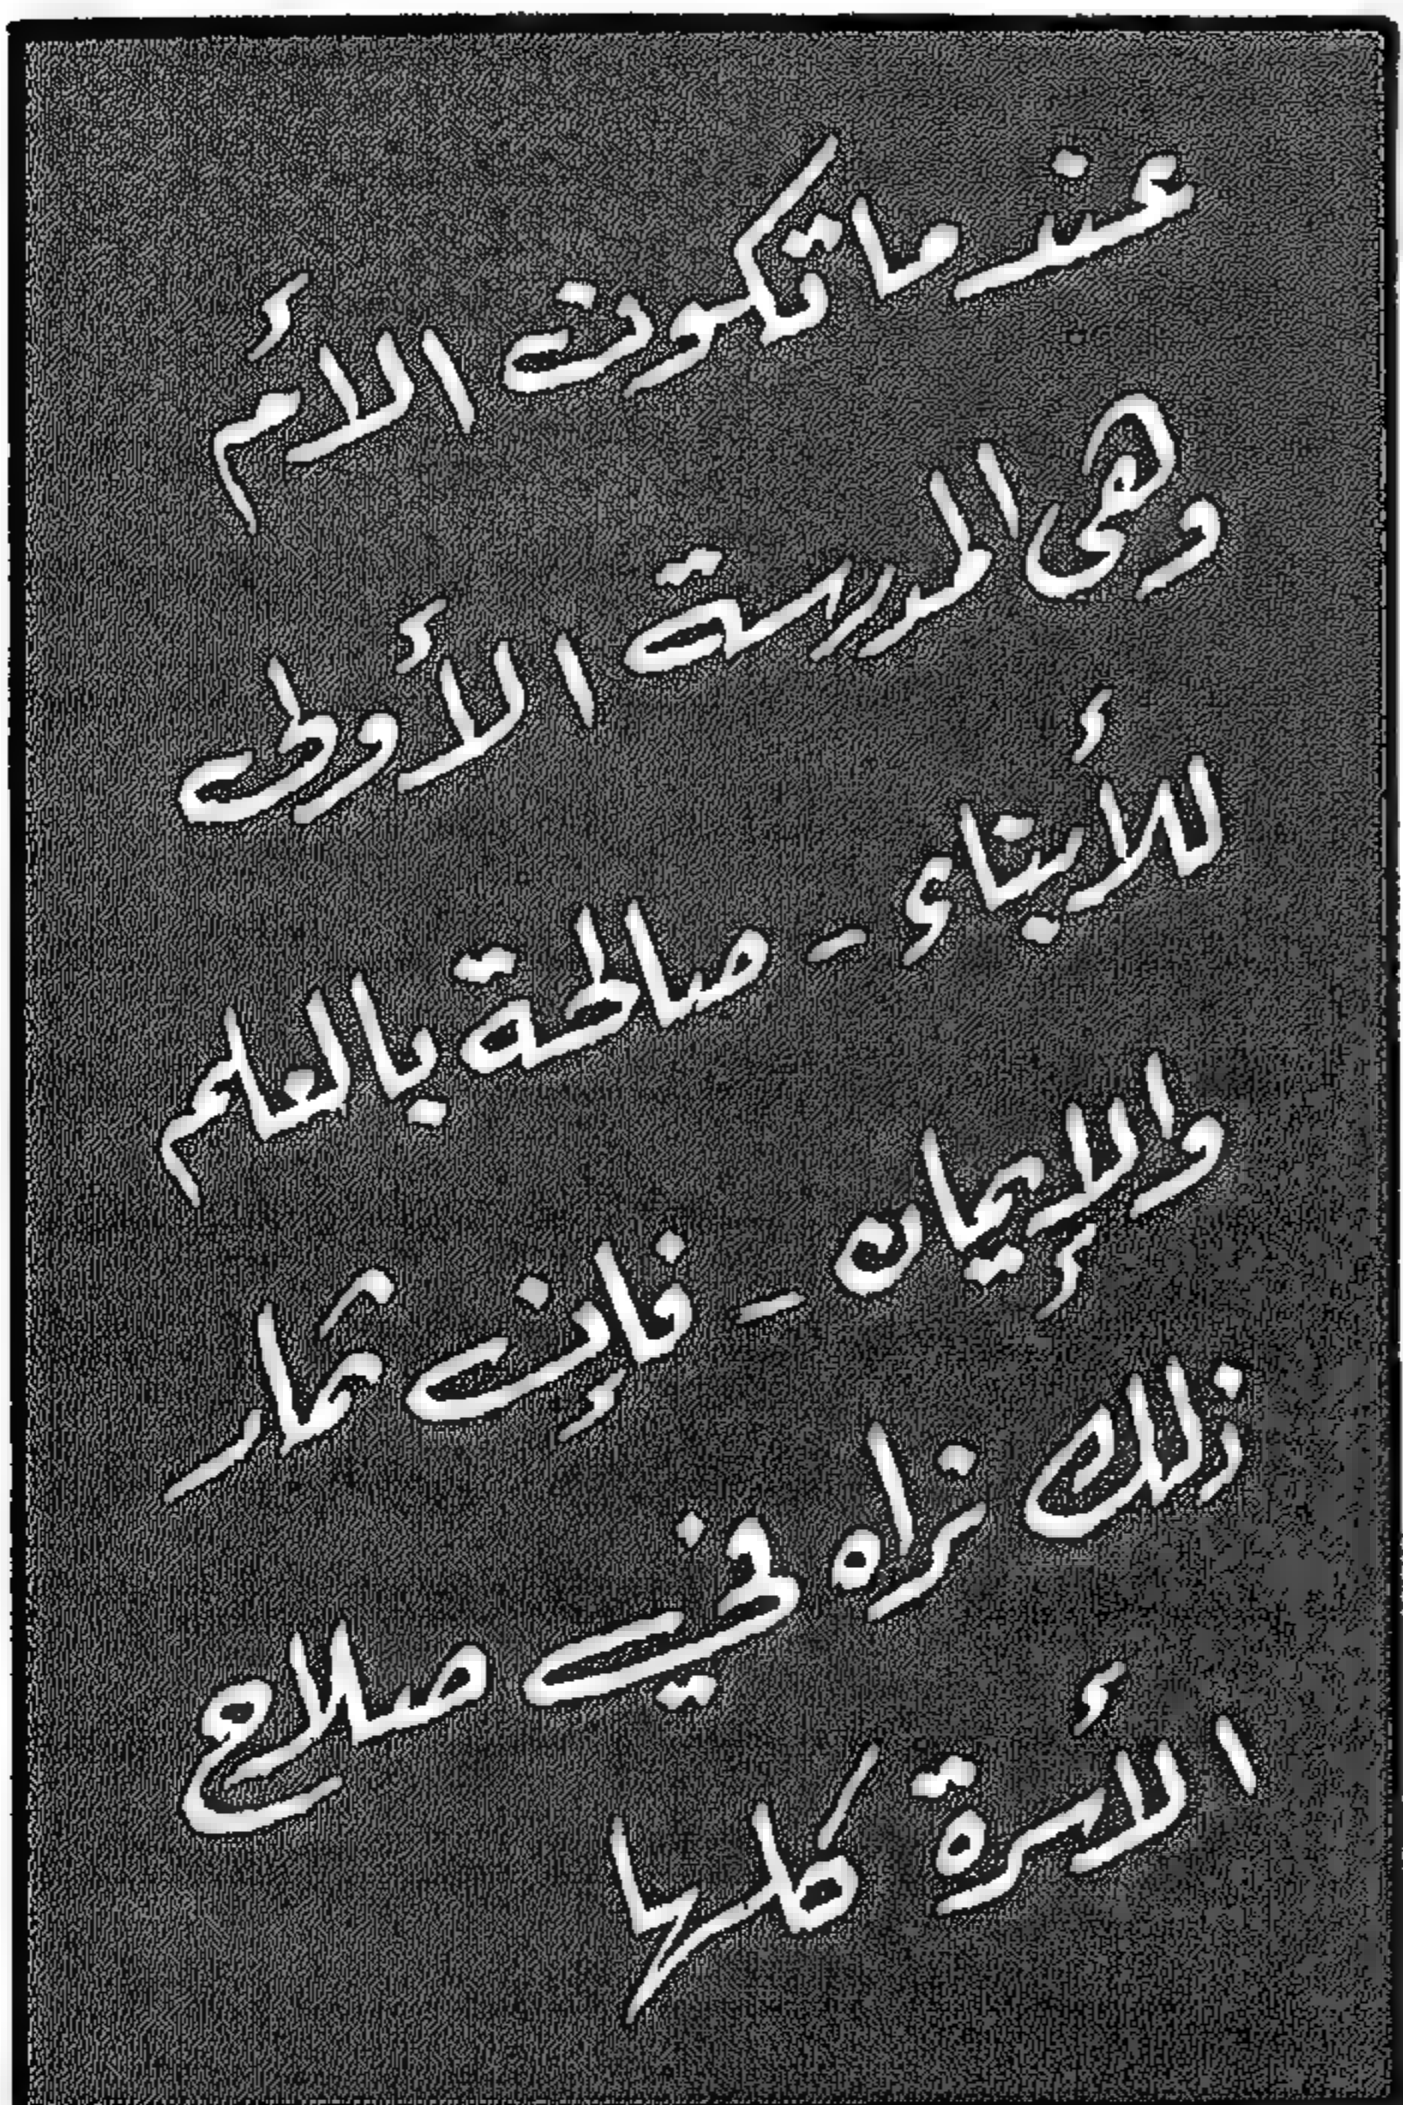 عندما تكون الأم
وهي المدرسة الأولى
للأبناء - صالحة بالعلم
والإيمان - فإن ثمار
ذلك نراه في صلاح
الأسرة كلها